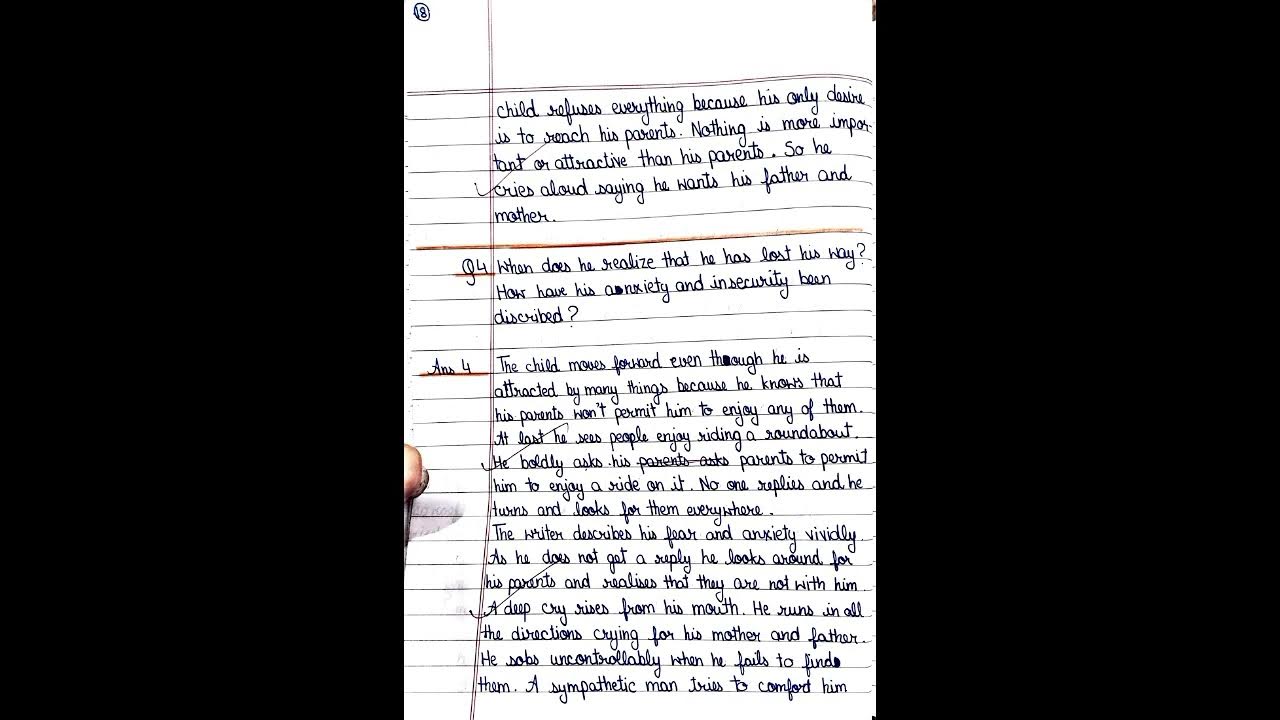 18
child refuses everything because his only desire
is to reach his parents. Nothing is more impor-
tant or attractive than his parents. So he
cries aloud saying he wants his father and
mother.
Q4 When does he realize that he has lost his way?
How have his anxiety and insecurity been
discribed?
Ans 4 The child moves forward even though he is
attracted by many things because he knows that
his parents won't permit him to enjoy any of them.
At last he sees people enjoy riding a roundabout.
He boldly asks his parents asks parents to permit
him to enjoy a ride on it. No one replies and he
turns and looks for them everywhere.
The writer describes his fear and anxiety vividly.
As he does not get a reply he looks around for
his parents and realises that they are not with him.
A deep cry rises from his mouth. He runs in all
the directions crying for his mother and father.
He sobs uncontrollably when he fails to find
them. A sympathetic man tries to comfort him